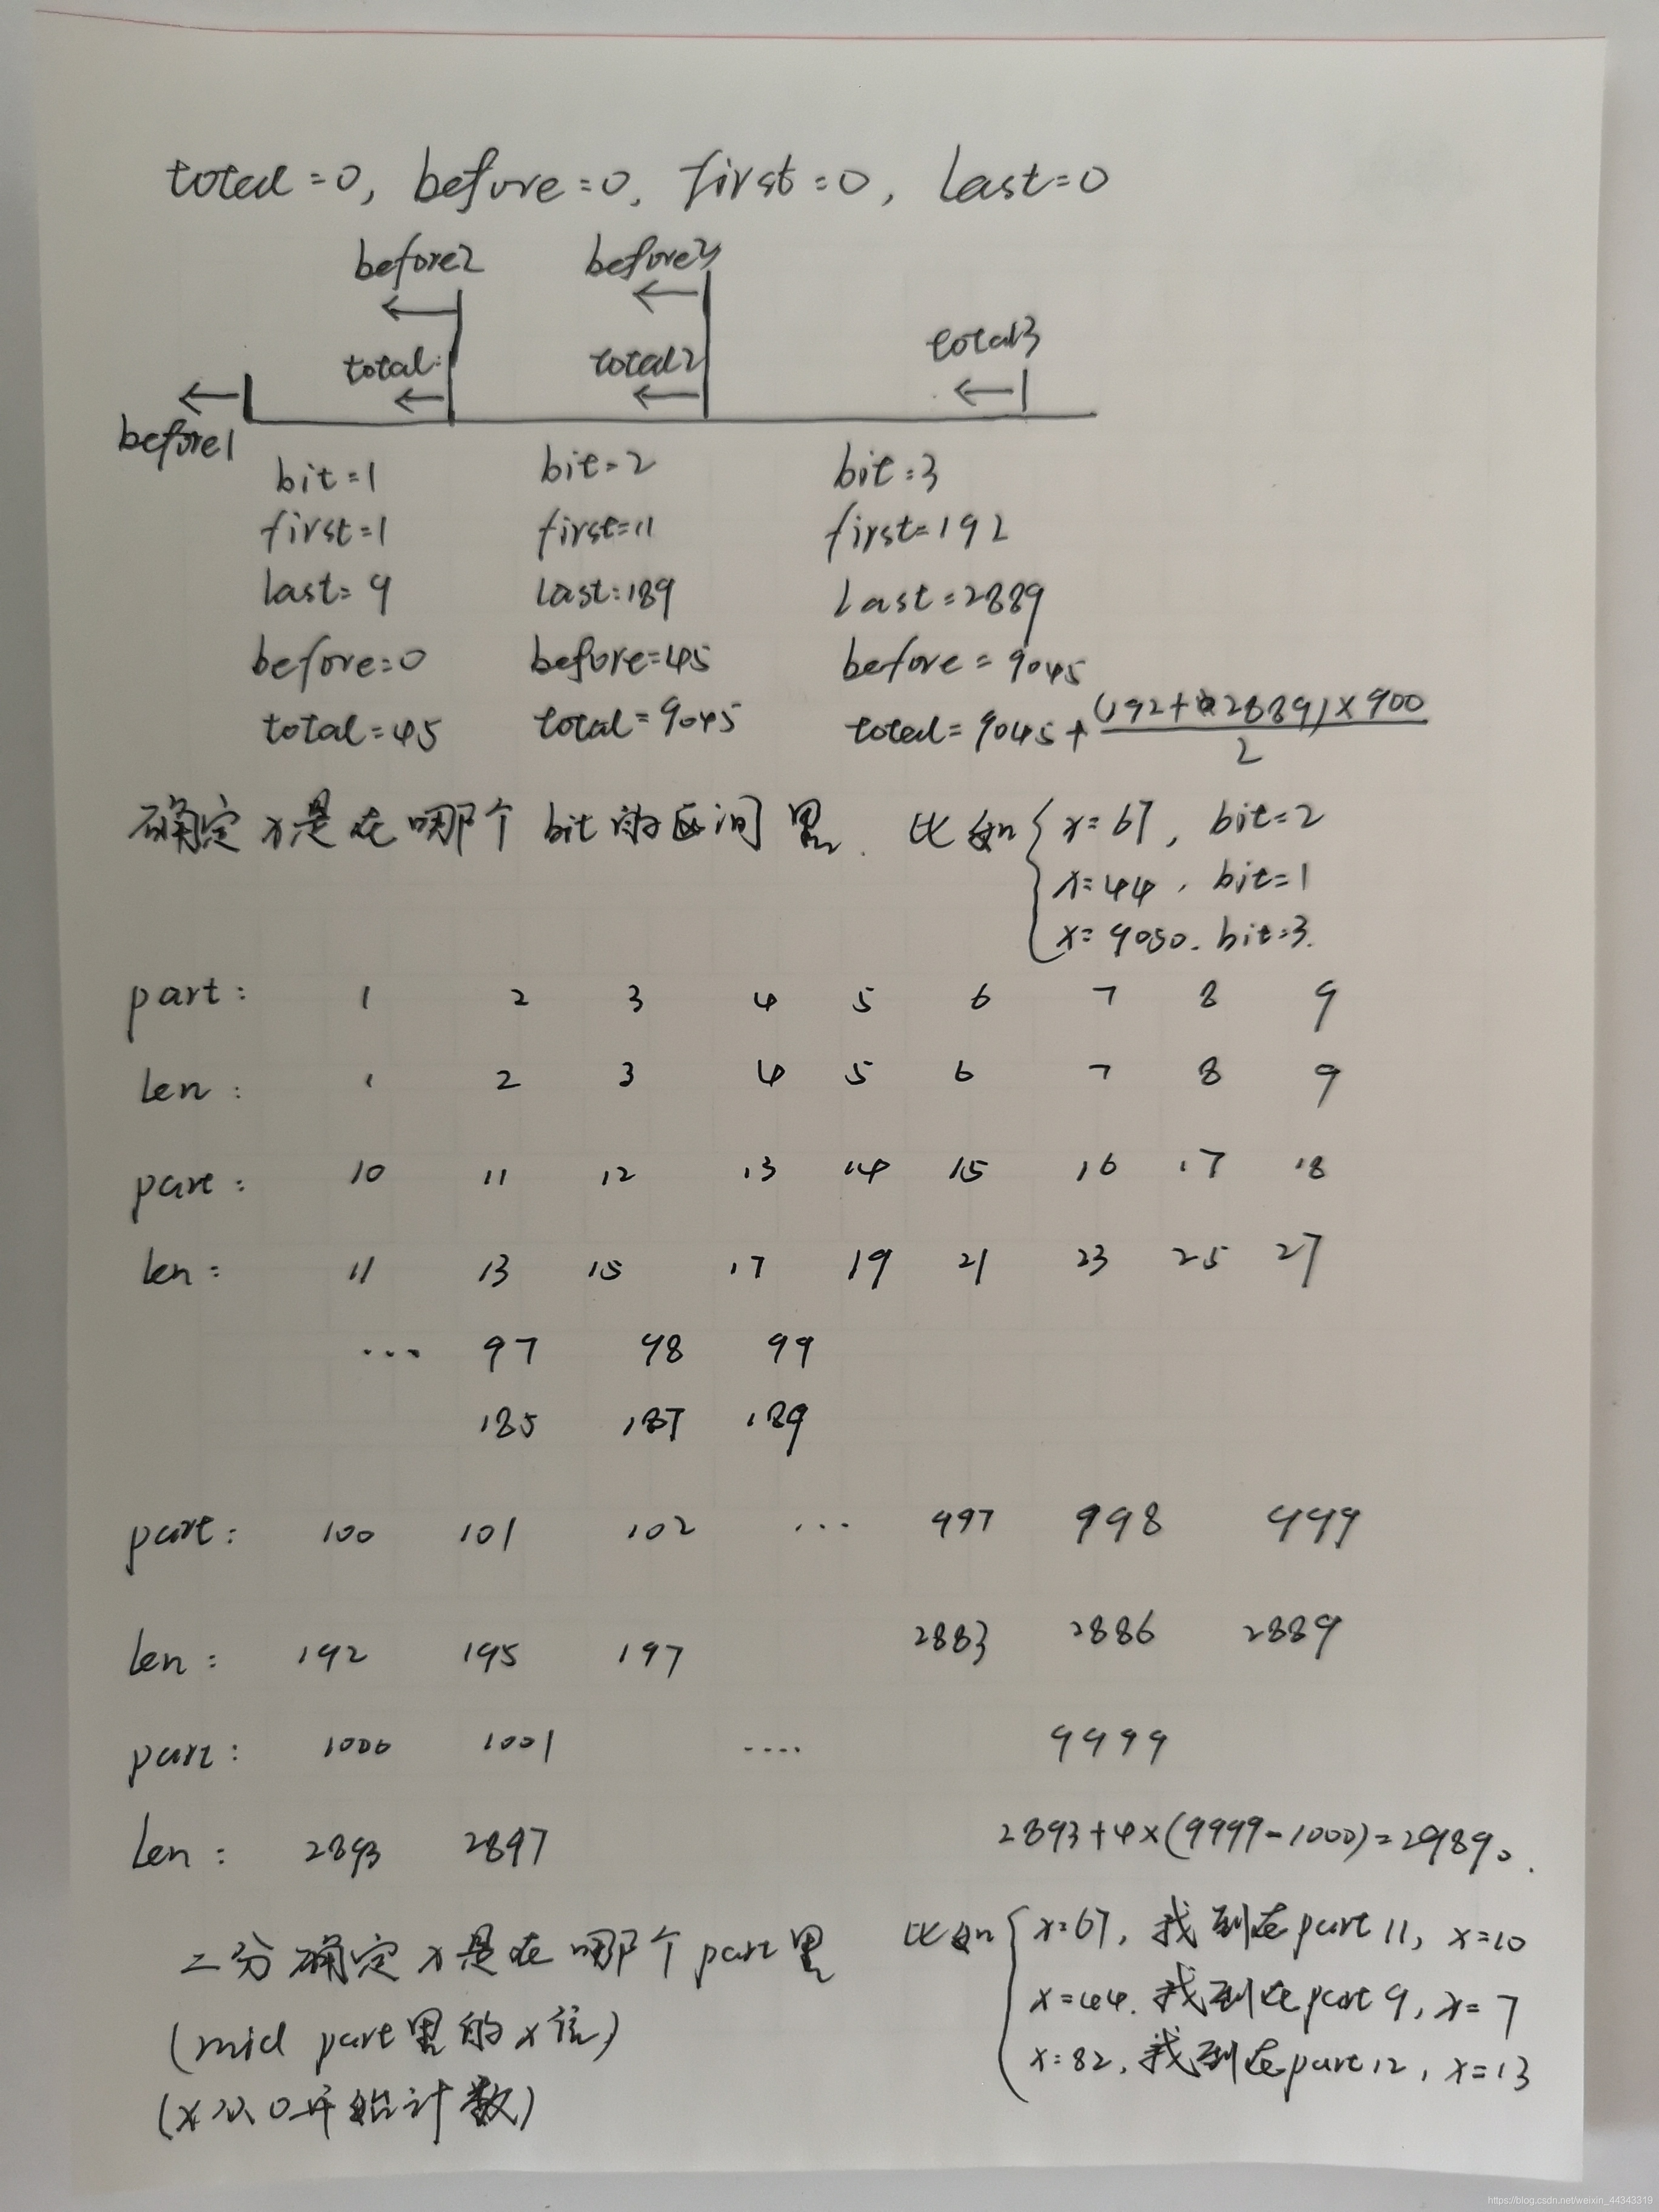 total=0, before=0, first=0, last=0
before2 before3
total1 total2 total3
before1
bit=1 bit=2 bit=3
first=1 first=11 first=192
last=9 last=189 last=2889
before=0 before=45 before=9045
total=45 total=9045 total=9045+(192+2889)×900/2
确定x是在哪个bit的区间里. 比如{x=67, bit=2
x=44, bit=1
x=9050. bit=3.
part: 1 2 3 4 5 6 7 8 9
len: 1 2 3 4 5 6 7 8 9
part: 10 11 12 13 14 15 16 17 18
len: 11 13 15 17 19 21 23 25 27
... 97 98 99
185 187 189
part: 100 101 102 ... 997 998 999
len: 192 195 197 2883 2886 2889
part: 1000 1001 .... 9999
len: 2893 2897 2893+4×(9999-1000)=29890.
二分确定x是在哪个part里 比如{x=67, 找到在part 11, x=10
(mid part里的x位) x=44. 找到在part 9, x=7
(x从0开始计数) x=82, 找到在part 12, x=13
https://blog.csdn.net/weixin_44343319